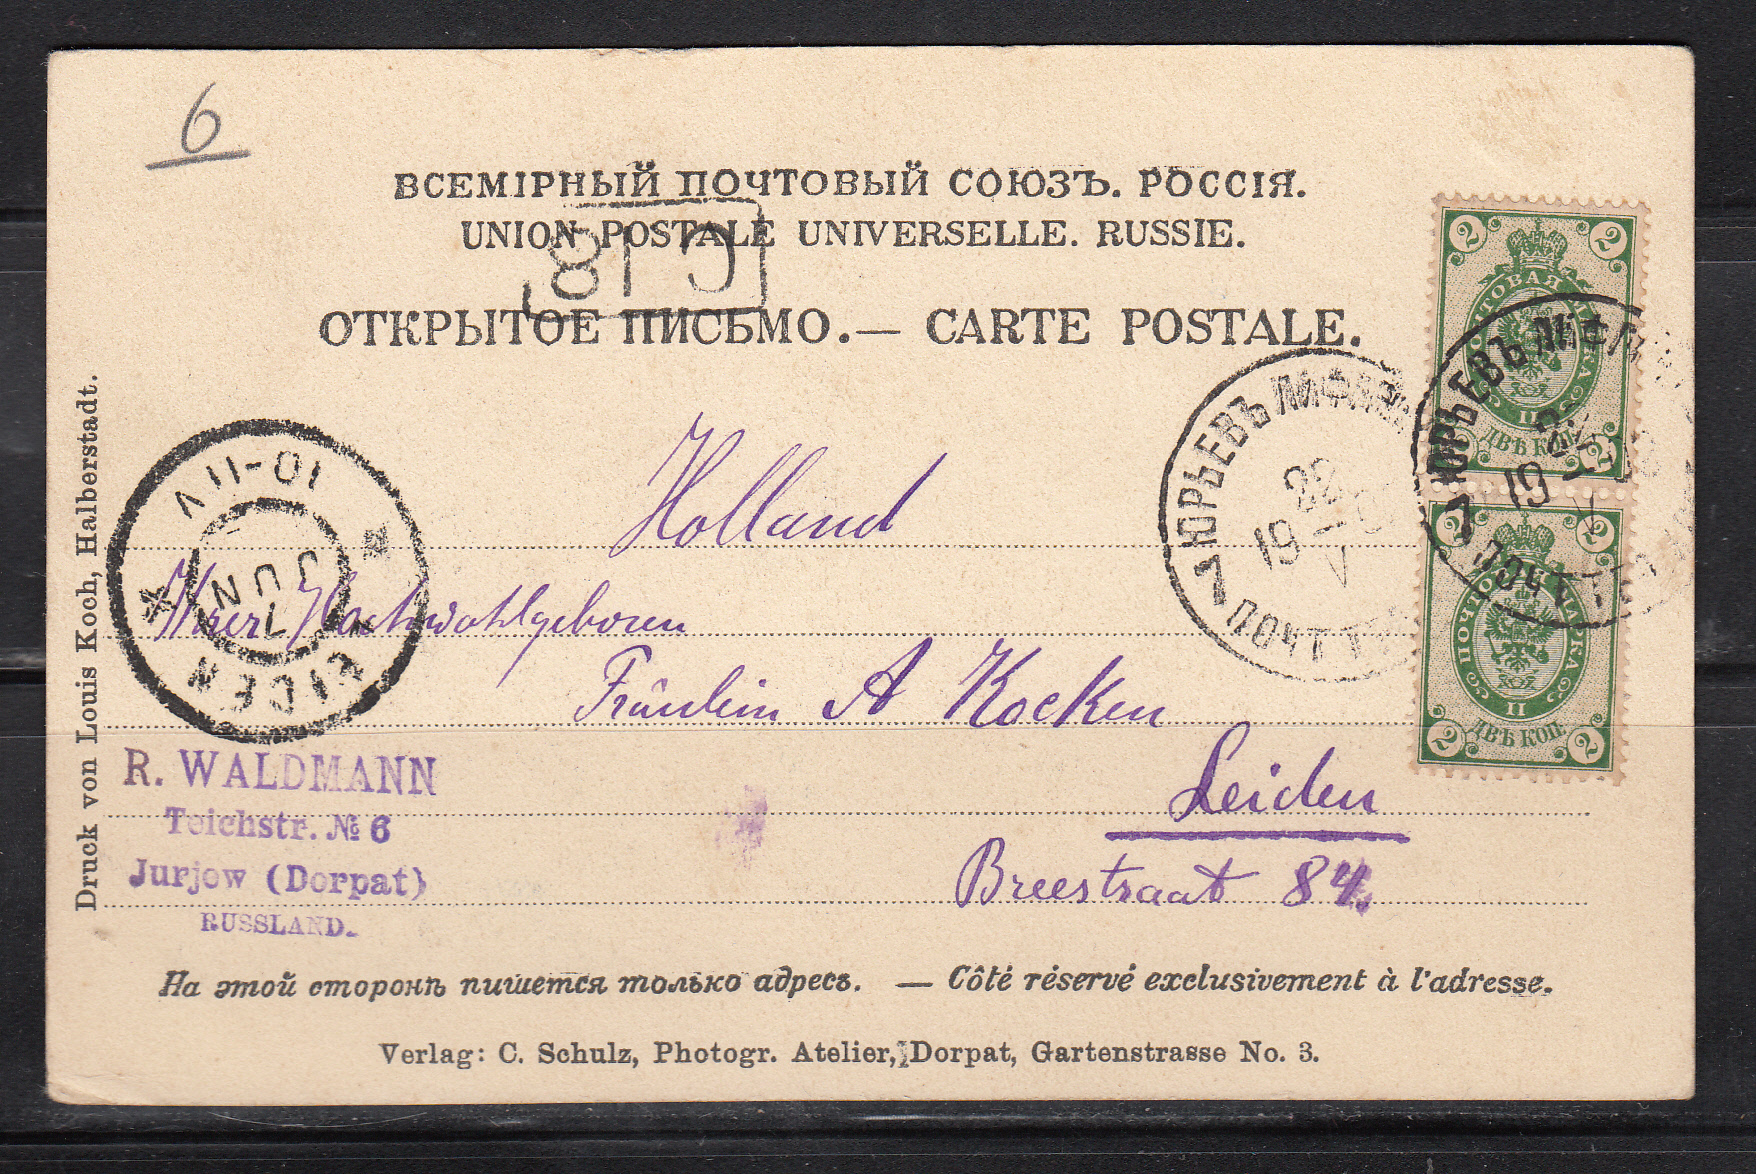 6
ВСЕМІРНЫЙ ПОЧТОВЫЙ СОЮЗЪ. РОССІЯ.
UNION POSTALE UNIVERSELLE. RUSSIE.
ОТКРЫТОЕ ПИСЬМО.— CARTE POSTALE.
2 2
ПОЧТОВАЯ МАРКА
ДВѢ КОП.
2
2 2
ПОЧТОВАЯ МАРКА
II
ДВѢ КОП.
2 2
ЮРЬЕВЪ ЛИФЛЯН
22
19
V
7
ПОЧТ
ЮРЬЕВЪ ЛИФЛ
19
V
7
ПОЧ
LEIDEN
7
JUN
10-11V
Holland
Ihrer Hochwohlgeboren
Fräulein A Kocken
Leiden
Breestraat 84.
R. WALDMANN
Teichstr. № 6
Jurjow (Dorpat)
RUSSLAND.
Druck von Louis Koch, Halberstadt.
На этой сторонѣ пишется только адресъ. — Côté réservé exclusivement à l'adresse.
Verlag: C. Schulz, Photogr. Atelier, Dorpat, Gartenstrasse No. 3.